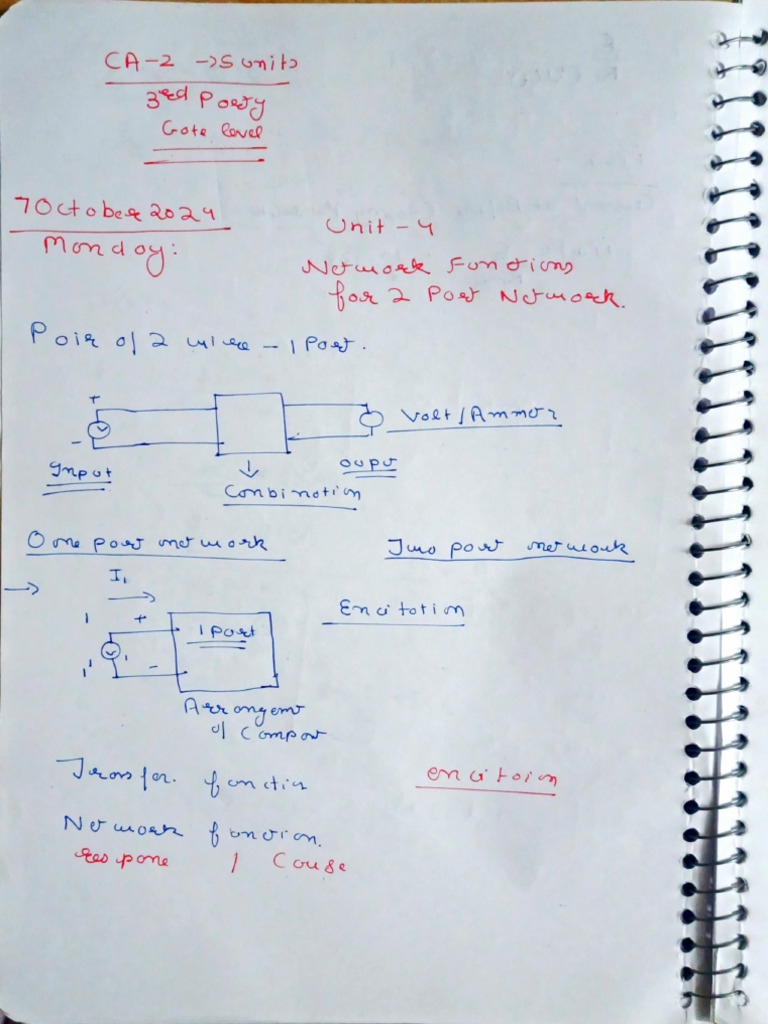 CA-2 → 5 units
3rd Party
Gate level
7 October 2024
Monday:
Unit - 4
Network Funtions
for 2 Port Network.
Pair of 2 wire - 1 Port.
+
-
Volt/Ammer
Input
↓
ouput
Conbination
One port network
Two port network
→
I1
→
1
+
1 Port
Encitation
1'
-
Arrangemt
of Compot
Transfor. functin
encitoion
Network function.
respone / Couse